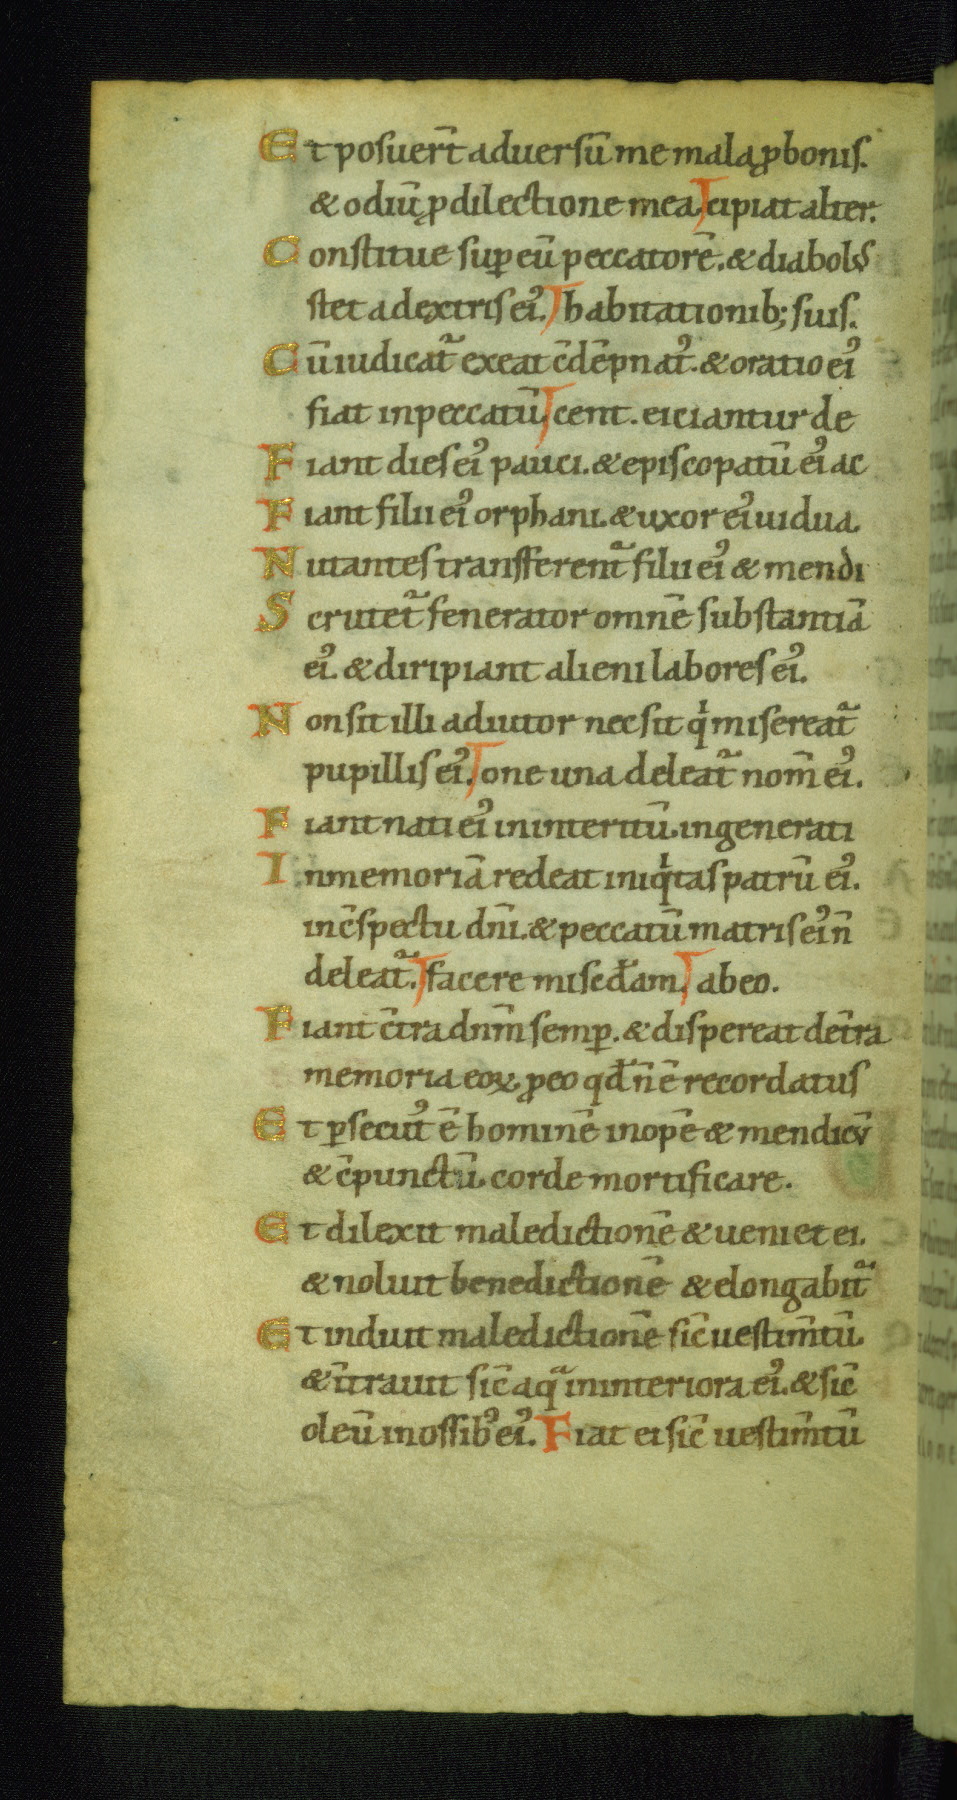 Et posuer̄t aduersū me mala ꝓ bonis.
& odiū ꝓ dilectione mea. cipiat alter.
Constitue sup̱ eū peccatorē. & diabolus
stet a dextris ei᷒. habitationib; suis.
Cū iudicat᷑ exeat c̄dēpnat᷒. & oratio ei᷒
fiat in peccatū. cent. eiciantur de
Fiant dies ei᷒ pauci. & episcopatū ei᷒ ac
Fiant filii ei᷒ orphani. & uxor ei᷒ uidua.
Nutantes transferent᷑ filii ei᷒ & mendi
Scrutet᷑ fenerator omnē substantiā
ei᷒. & diripiant alieni labores ei᷒.
Non sit illi adiutor nec sit qͥ misereat᷑
pupillis ei᷒. one una deleat᷑ nom̄ ei᷒.
Fiant nati ei᷒ in interitū. in generati
In memoriā redeat iniqͥtas patrū ei᷒.
in c̄spectu dn̄i. & peccatū matris ei᷒ n̄
deleat᷑. facere misc̄d̄am. ab eo.
Fiant c̄tra dnm̄ semp̱. & dispereat de t̄ra
memoria eoꝝ. ꝓ eo qd̄ n̄ ē recordatus
Et ꝑsecut᷒ ē hominē inopē & mendicū
& c̄punctū corde mortificare.
Et dilexit maledictionē & ueniet ei.
& noluit benedictionē & elongabit᷑
Et induit maledictionē sic̄ uestim̄tū.
& īntrauit sic̄ aqᷓ in interiora ei᷒. & sic̄
oleū in ossib᷒ ei᷒. Fiat ei sic̄ uestim̄tū